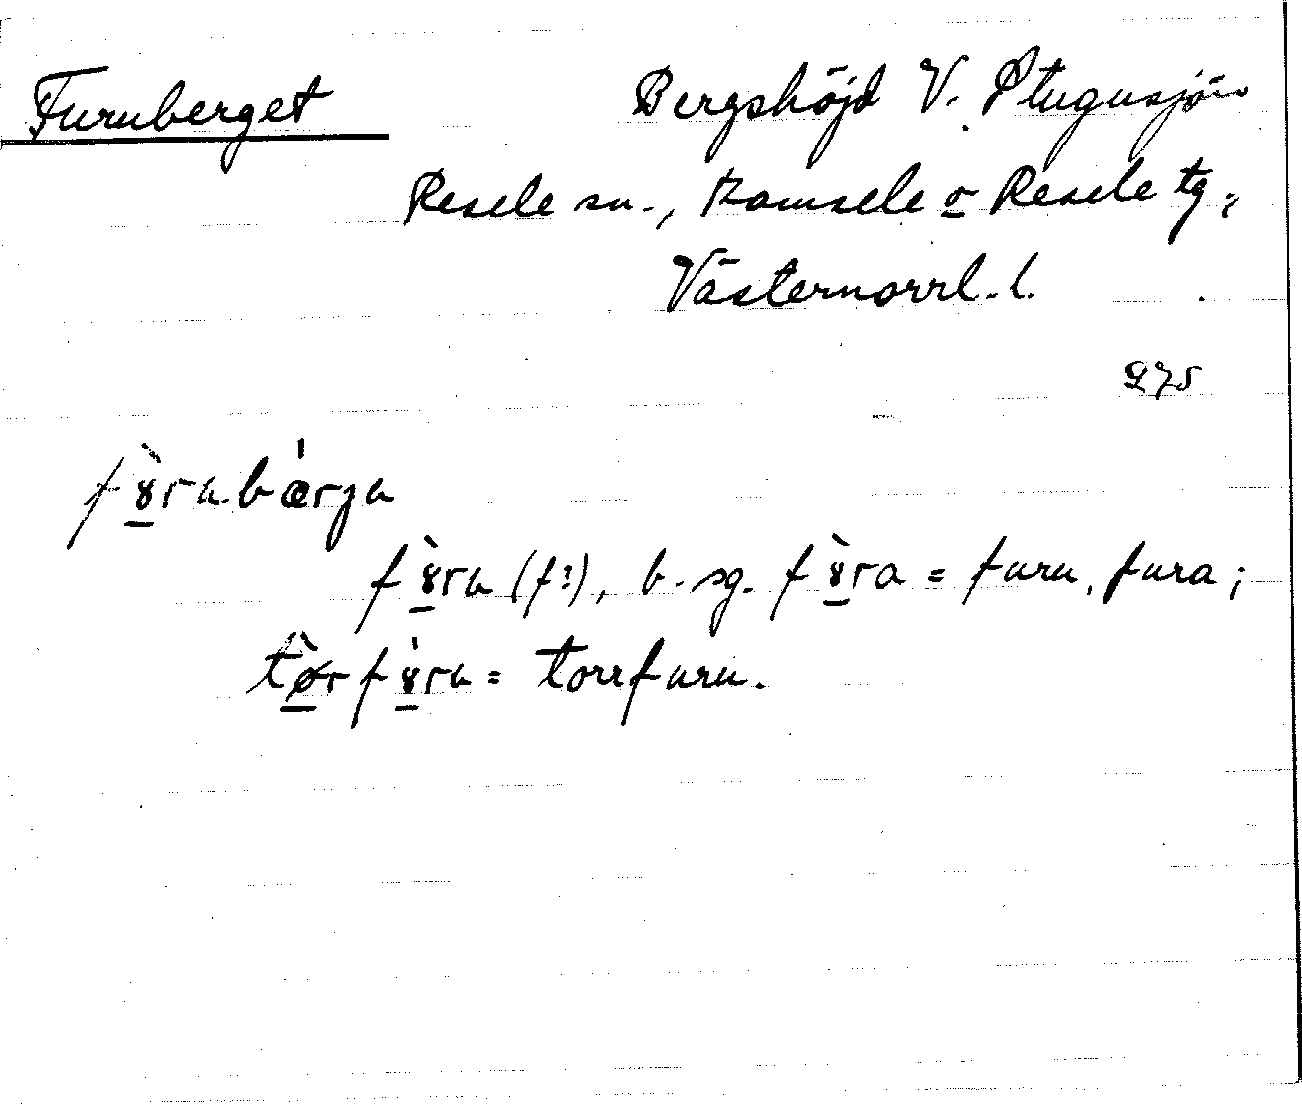 Furuberget Bergshöjd V. Stugusjön
Resele sn., Ramsele o Resele tg,
Västernorrl. l.
275
fȣ̠̀rabǽrga
fȣ̠̀ra (f?), b. sg. fȣ̠̀ra = furu, fura;
tø̠̀rfȣ̠́ra = torrfuru.